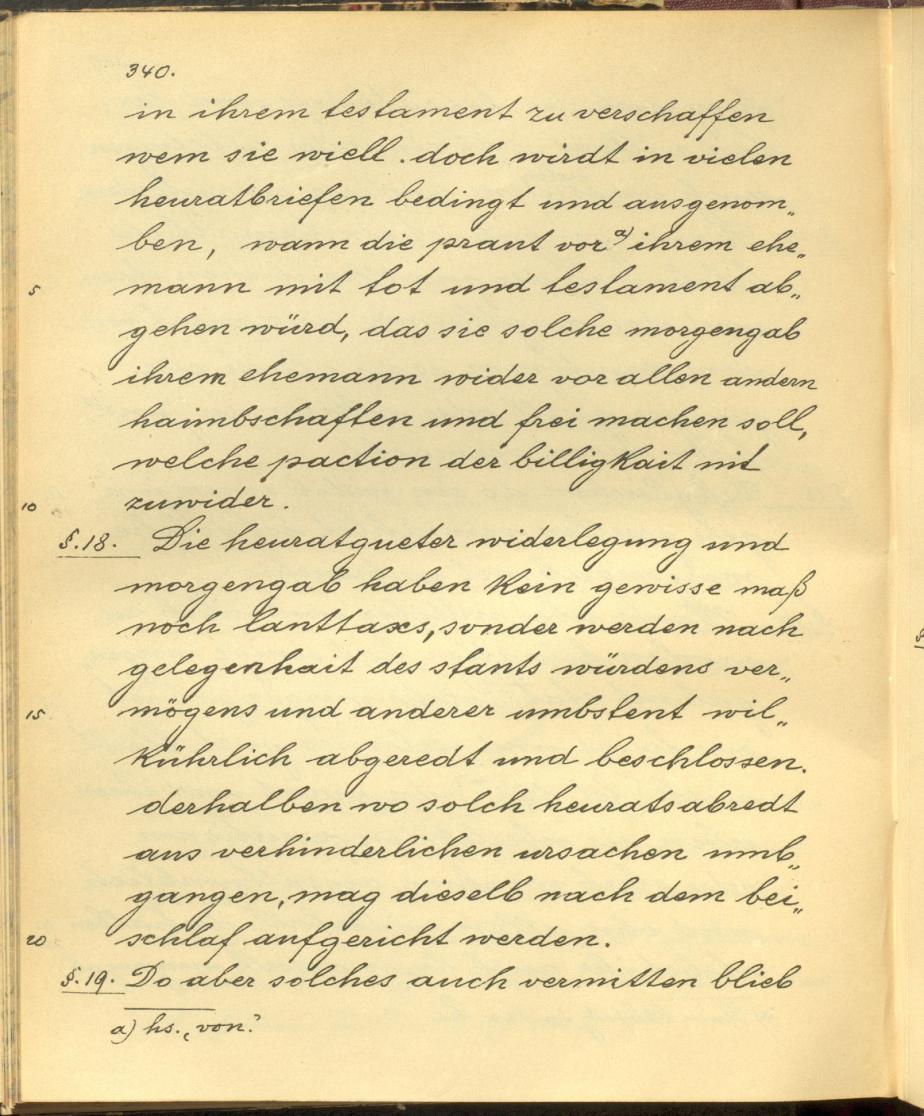 340.
in ihrem testament zu verschaffen
wem sie wiell. doch wirdt in vielen
heuratbriefen bedingt und ausgenom„
ben, wann die praut vor a) ihrem ehe„
5 mann mit tot und testament ab„
gehen würd, das sie solche morgengab
ihrem ehemann wider vor allen andern
haimbschaften und frei machen soll,
welche paction der billigkait nit
10 zuwider.
§.18. Die heuratgueter widerlegung und
morgengab haben kein gewisse maß
noch lanttaxs, sonder werden nach
gelegenhait des stants würdens ver„
15 mögens und anderer umbstent wil„
kührlich abgeredt und beschlossen.
derhalben wo solch heuratsabredt
aus verhinderlichen ursachen umb„
gangen, mag dieselb nach dem bei„
20 schlaf aufgericht werden.
§.19. Do aber solches auch vermitten blieb
a) hs. „von."